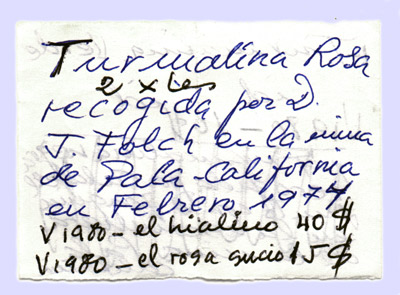 Turmalina Rosa
2 xles
recogida por D.
J. Folch en la mina
de Pala-California
en Febrero 1974
V1980 - el hialino 40 $
V1980 - el rosa sucio 15 $